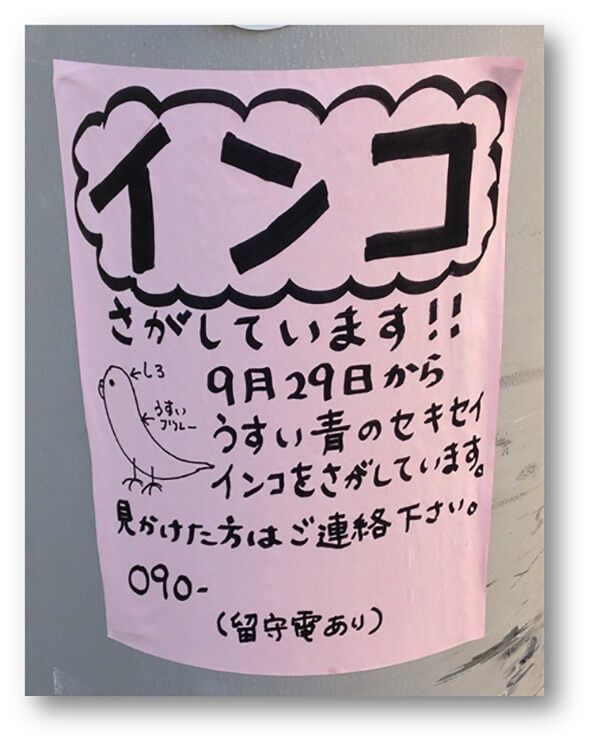 インコ
さがしています!!
←しろ
←うすい
ブルー
9月29日から
うすい青のセキセイ
インコをさがしています。
見かけた方はご連絡下さい。
090-
(留守電あり)